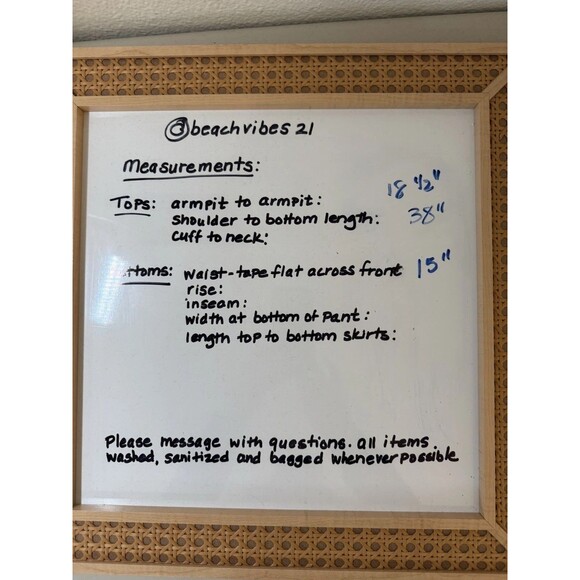 @beachvibes21
Measurements:
Tops: armpit to armpit: 18 1/2"
shoulder to bottom length: 38"
cuff to neck:
Bottoms: waist-tape flat across front 15"
rise:
inseam:
width at bottom of pant:
length top to bottom skirts:
Please message with questions. all items
washed, sanitized and bagged whenever possible